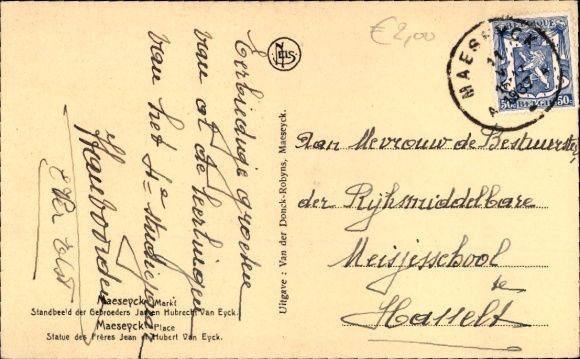 Eerbiedige groeten
van al de leerlingen
van het 4e studiejaar
Uitgave : Van der Donck-Robyns, Maeseyck.
Maeseyck Markt
Standbeeld der Gebroeders Jan en Hubrecht Van Eyck.
Maeseyck Place
Statue des Frères Jean et Hubert Van Eyck.
€2,00
MAESEYCK
BELGIQUE
50c BELGIE 50c
Aan Mevrouw de Bestuurster
der Rijksmiddelbare
Meisjesschool
te
Hasselt